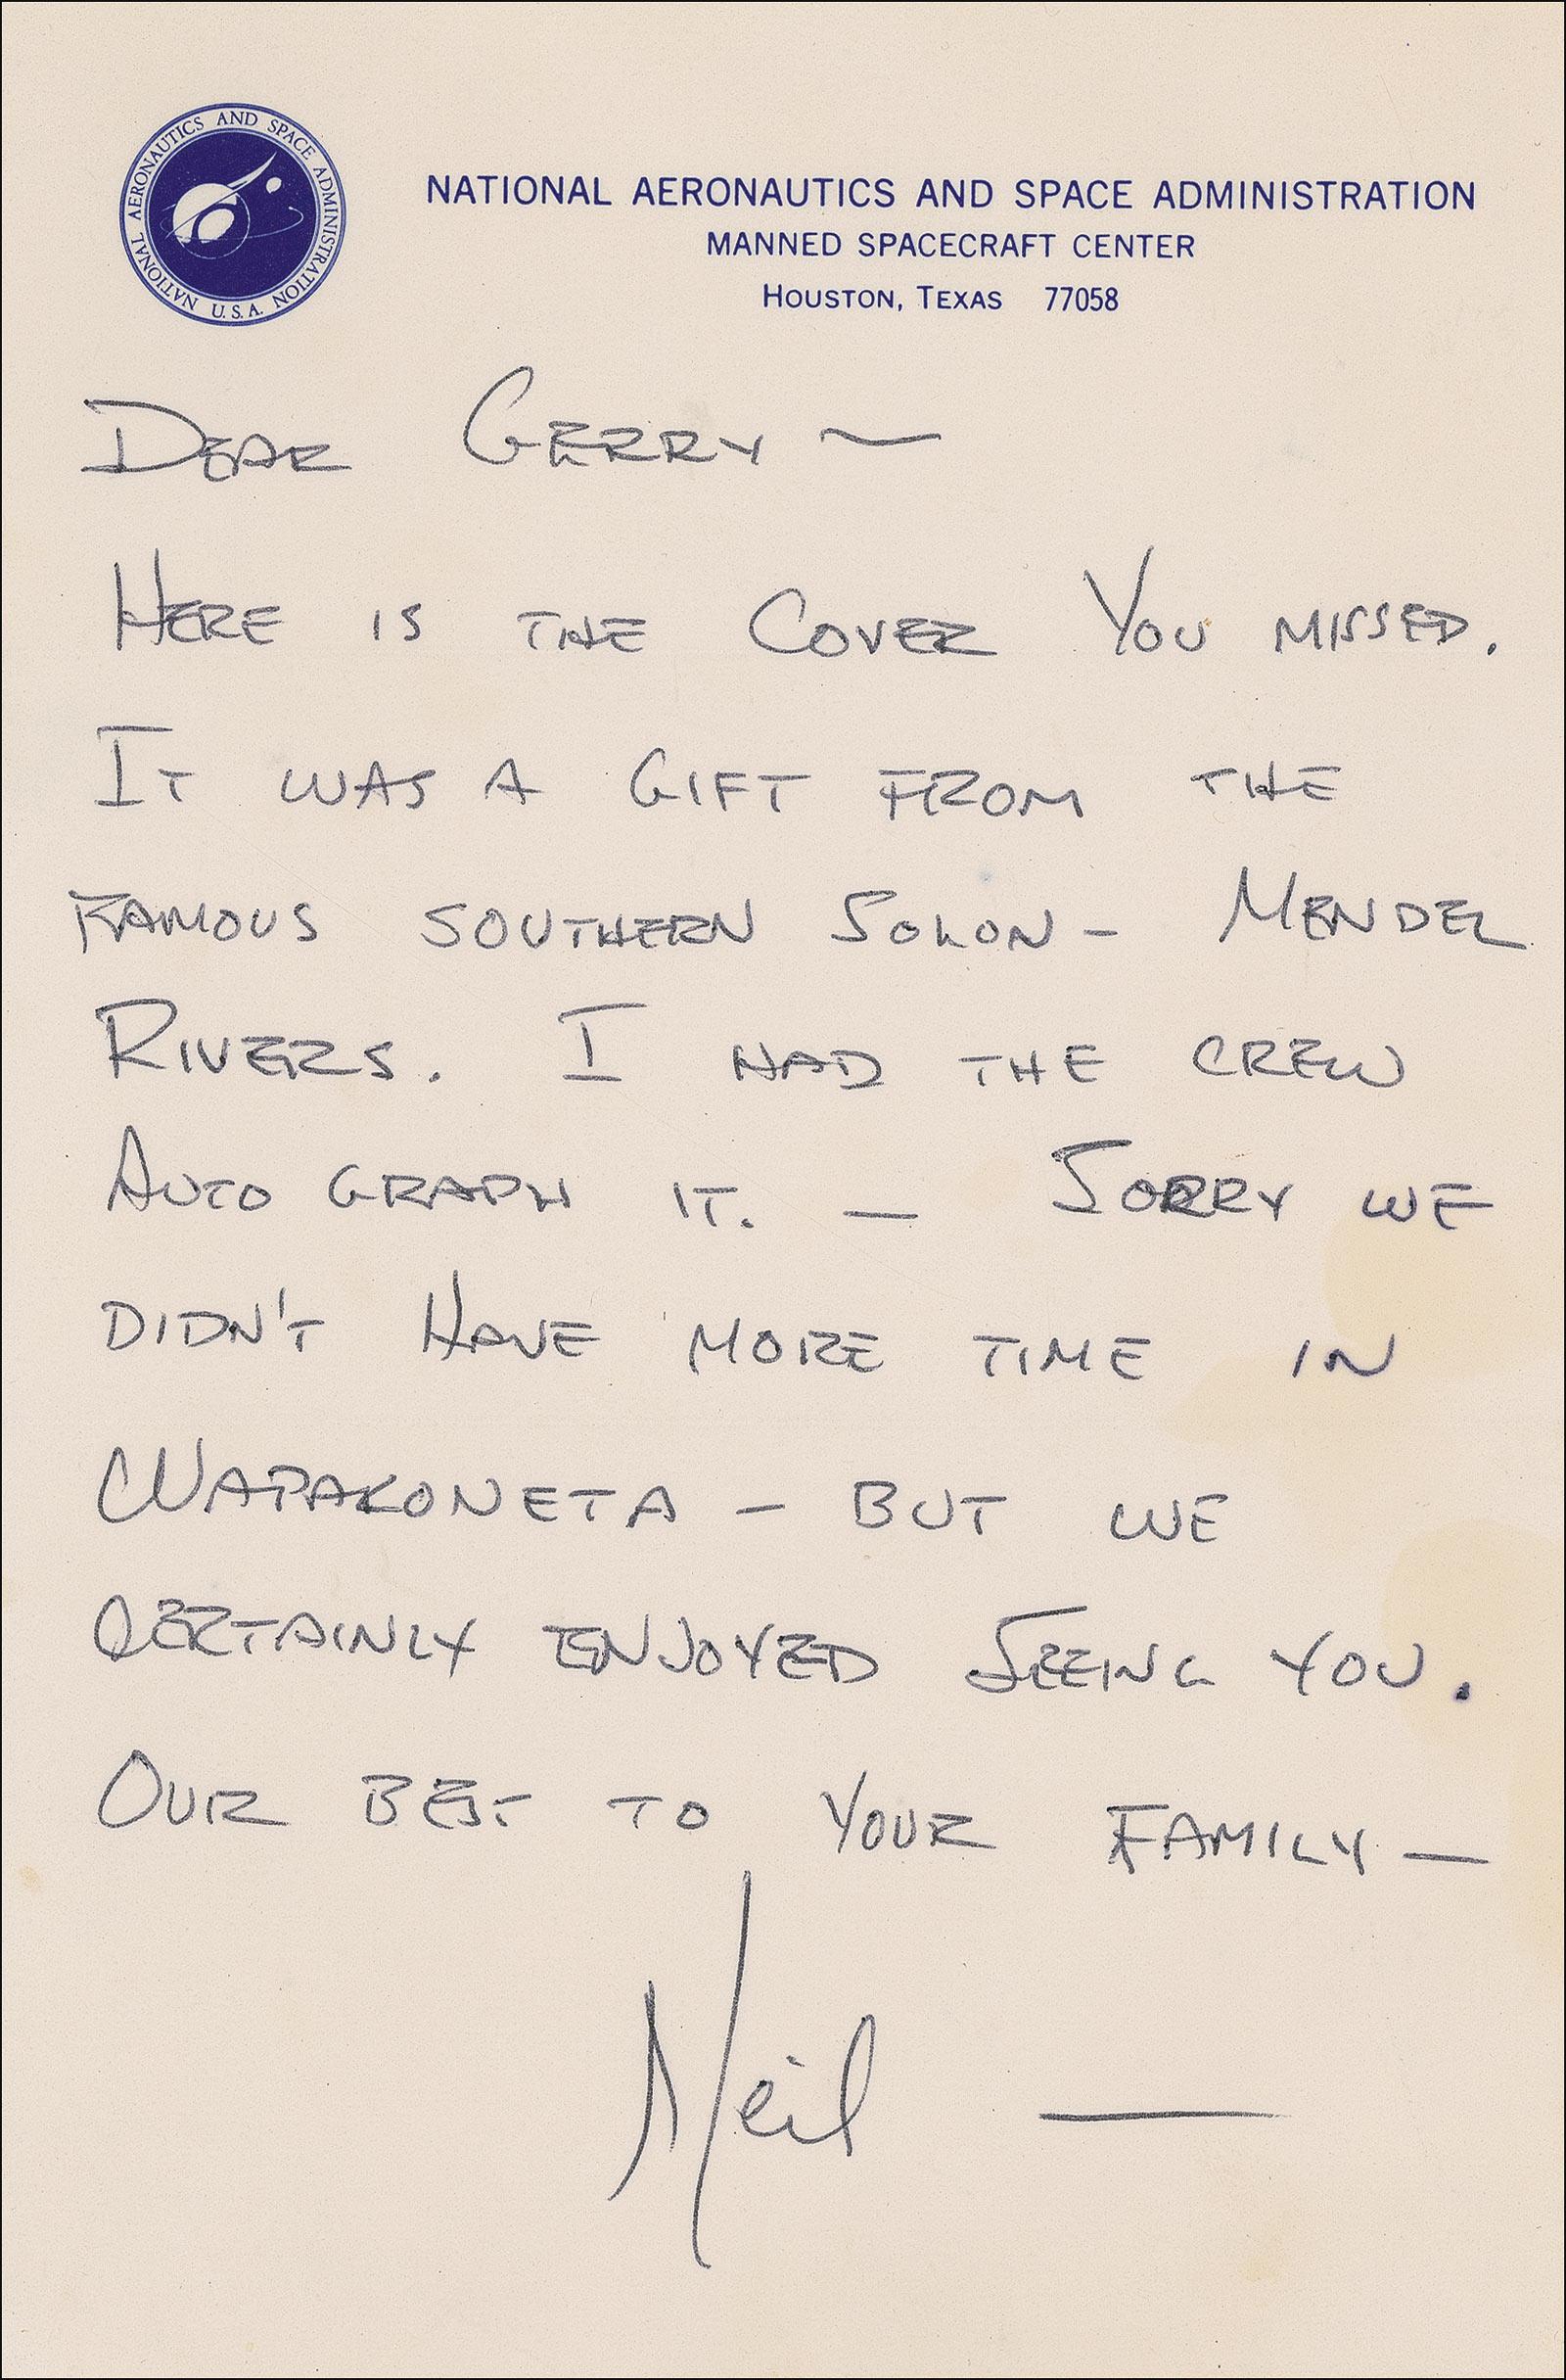 NATIONAL AERONAUTICS AND SPACE ADMINISTRATION U.S.A.
NATIONAL AERONAUTICS AND SPACE ADMINISTRATION
MANNED SPACECRAFT CENTER
HOUSTON, TEXAS 77058
DEAR GERRY ~
HERE IS THE COVER YOU MISSED.
IT WAS A GIFT FROM THE
FAMOUS SOUTHERN SOLON - MENDEL
RIVERS. I HAD THE CREW
AUTO GRAPH IT. — SORRY WE
DIDN'T HAVE MORE TIME IN
WAPAKONETA - BUT WE
CERTAINLY ENJOYED SEEING YOU.
OUR BEST TO YOUR FAMILY —
Neil —